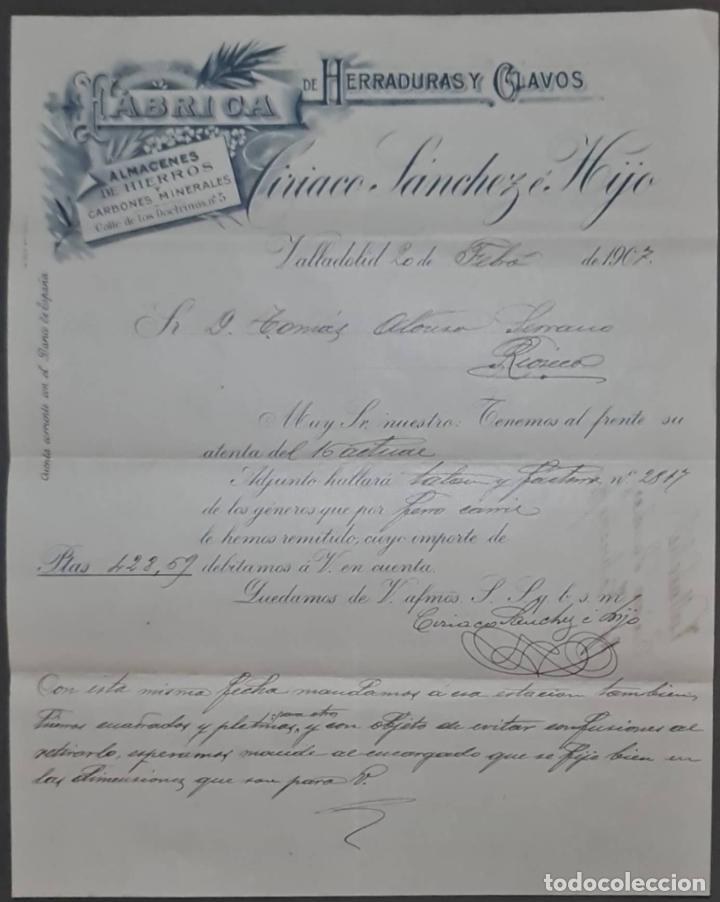 FÁBRICA DE HERRADURAS Y CLAVOS
ALMACENES
DE HIERROS
Y
CARBONES MINERALES
Calle de los Doctrinos, nº 5
Ciriaco Sánchez é Hijo
Valladolid 20 de Febº de 1907.
Sr. D. Tomás Alonso Serrano
Rioseco
Cuenta corriente con el Banco de España
Muy Sr. nuestro: Tenemos al frente su
atenta del 16 actual
Adjunto hallará talon y factura nº 2817
de los géneros que por ferro carril
le hemos remitido, cuyo importe de
Ptas 428,69 debitamos á V. en cuenta.
Quedamos de V. afmos. S. S. q. b. s. m.
Ciriaco Sanchez é Hijo
Con esta misma fecha mandamos á esa estacion tambien
para otros
hierros cuadrados y pletinas, y con objeto de evitar confusiones al
retirarlo, esperamos mande al encargado que se fije bien en
las dimensiones que son para V.
todocoleccion.net